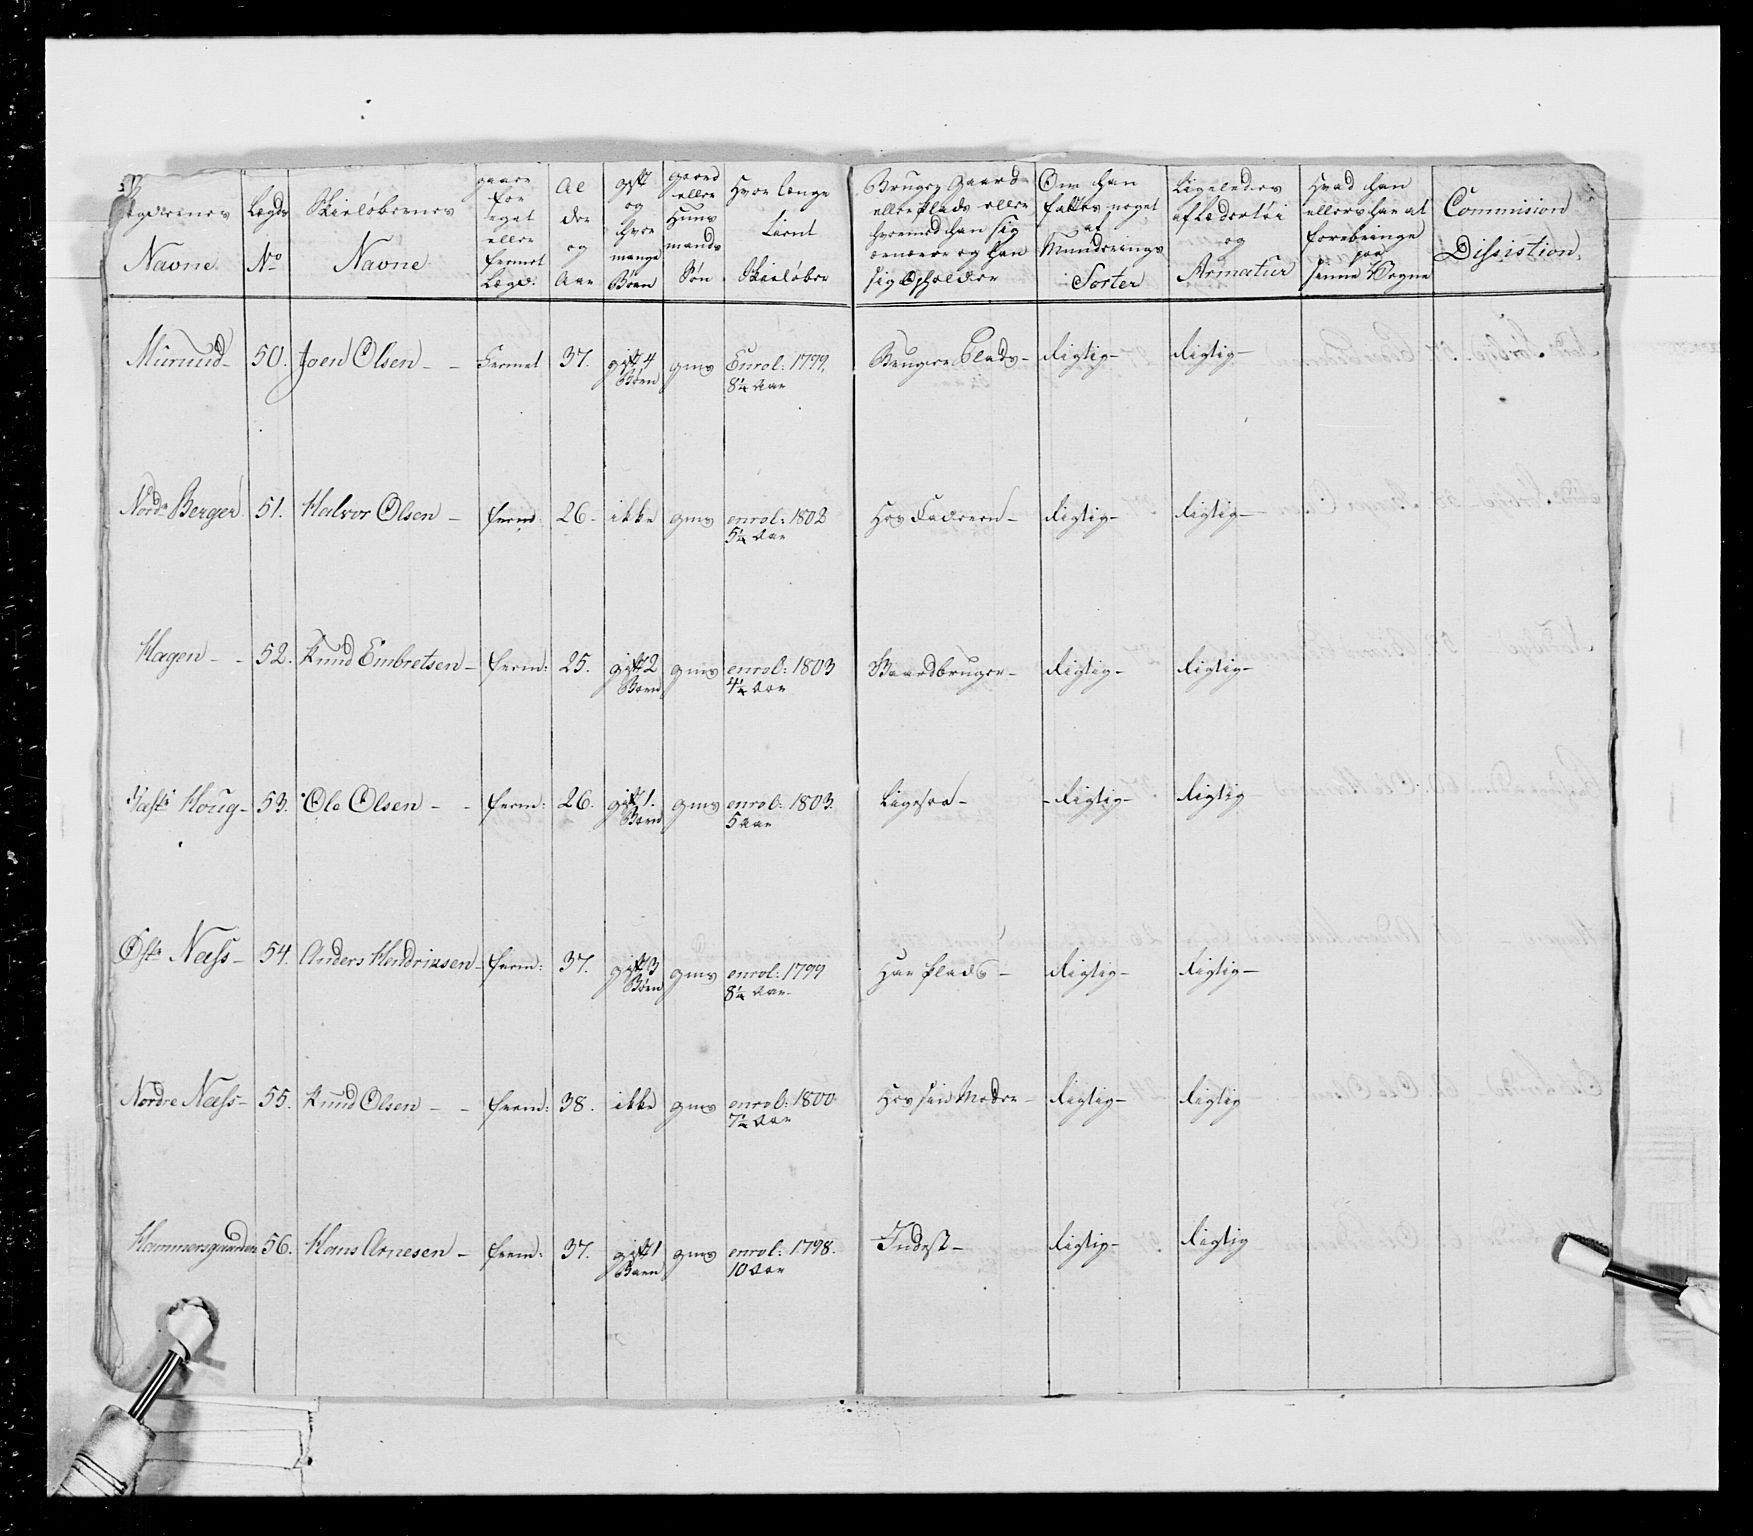 Lægdernes Navne | Lægds No | Skieløbernes Navne | gaaer for eget eller fremet Lægd: | Al der og Aar | gift og hvor mange Børn | gaard eller Huus mands Søn | Hvor længe tient Skieløber | Bruger Gaard eller Plads eller hvormed han sig ernærer og han sig Opholder | Om han fattes noget af Munderings Sorter | Ligeledes af Lædertøi og Armatur | Hvad han ellers har at forebringe paa sinne Vegne | Commision Dissistion.
Murud - 50. Joen Olsen - - Fremet 37. gift 4 Børn gms Enrol: 1799. 8¼ Aar Bruger Plads - Rigtig - Rigtig -
Nordr Berger 51. Halvor Olsen - frem: 26 - ikke gms enrol: 1802 5¼ Aar Hos Faderen - Rigtig - Rigtig -
Hagen - - 52. Knud Embretsen - frem: 25. gift 2 Børn gms enrol: 1803 4¼ Aar Gaardbruger - Rigtig - Rigtig -
Houg - 53. Ole Olsen - - frem: 26. gift 1. Barn gms enrol: 1803. 5 Aar Ligesaa - - Rigtig - Rigtig
Østr Næss - 54. Anders Hendriksen - frem: 37. gift 3 Børn gms enrol: 1799 8¼ Aar - Har Plads - Rigtig - Rigtig -
Nordre Næss - 55. Knud Olsen - - frem: 38. ikke gms enrol: 1800 7¼ Aar Hos sin Moder - Rigtig - Rigtig
Hammersgaarden 56. Hans Arnesen - frem: 37. gift 1 Barn gms enrol: 1798. 10 Aar Inderst - Rigtig - Rigtig